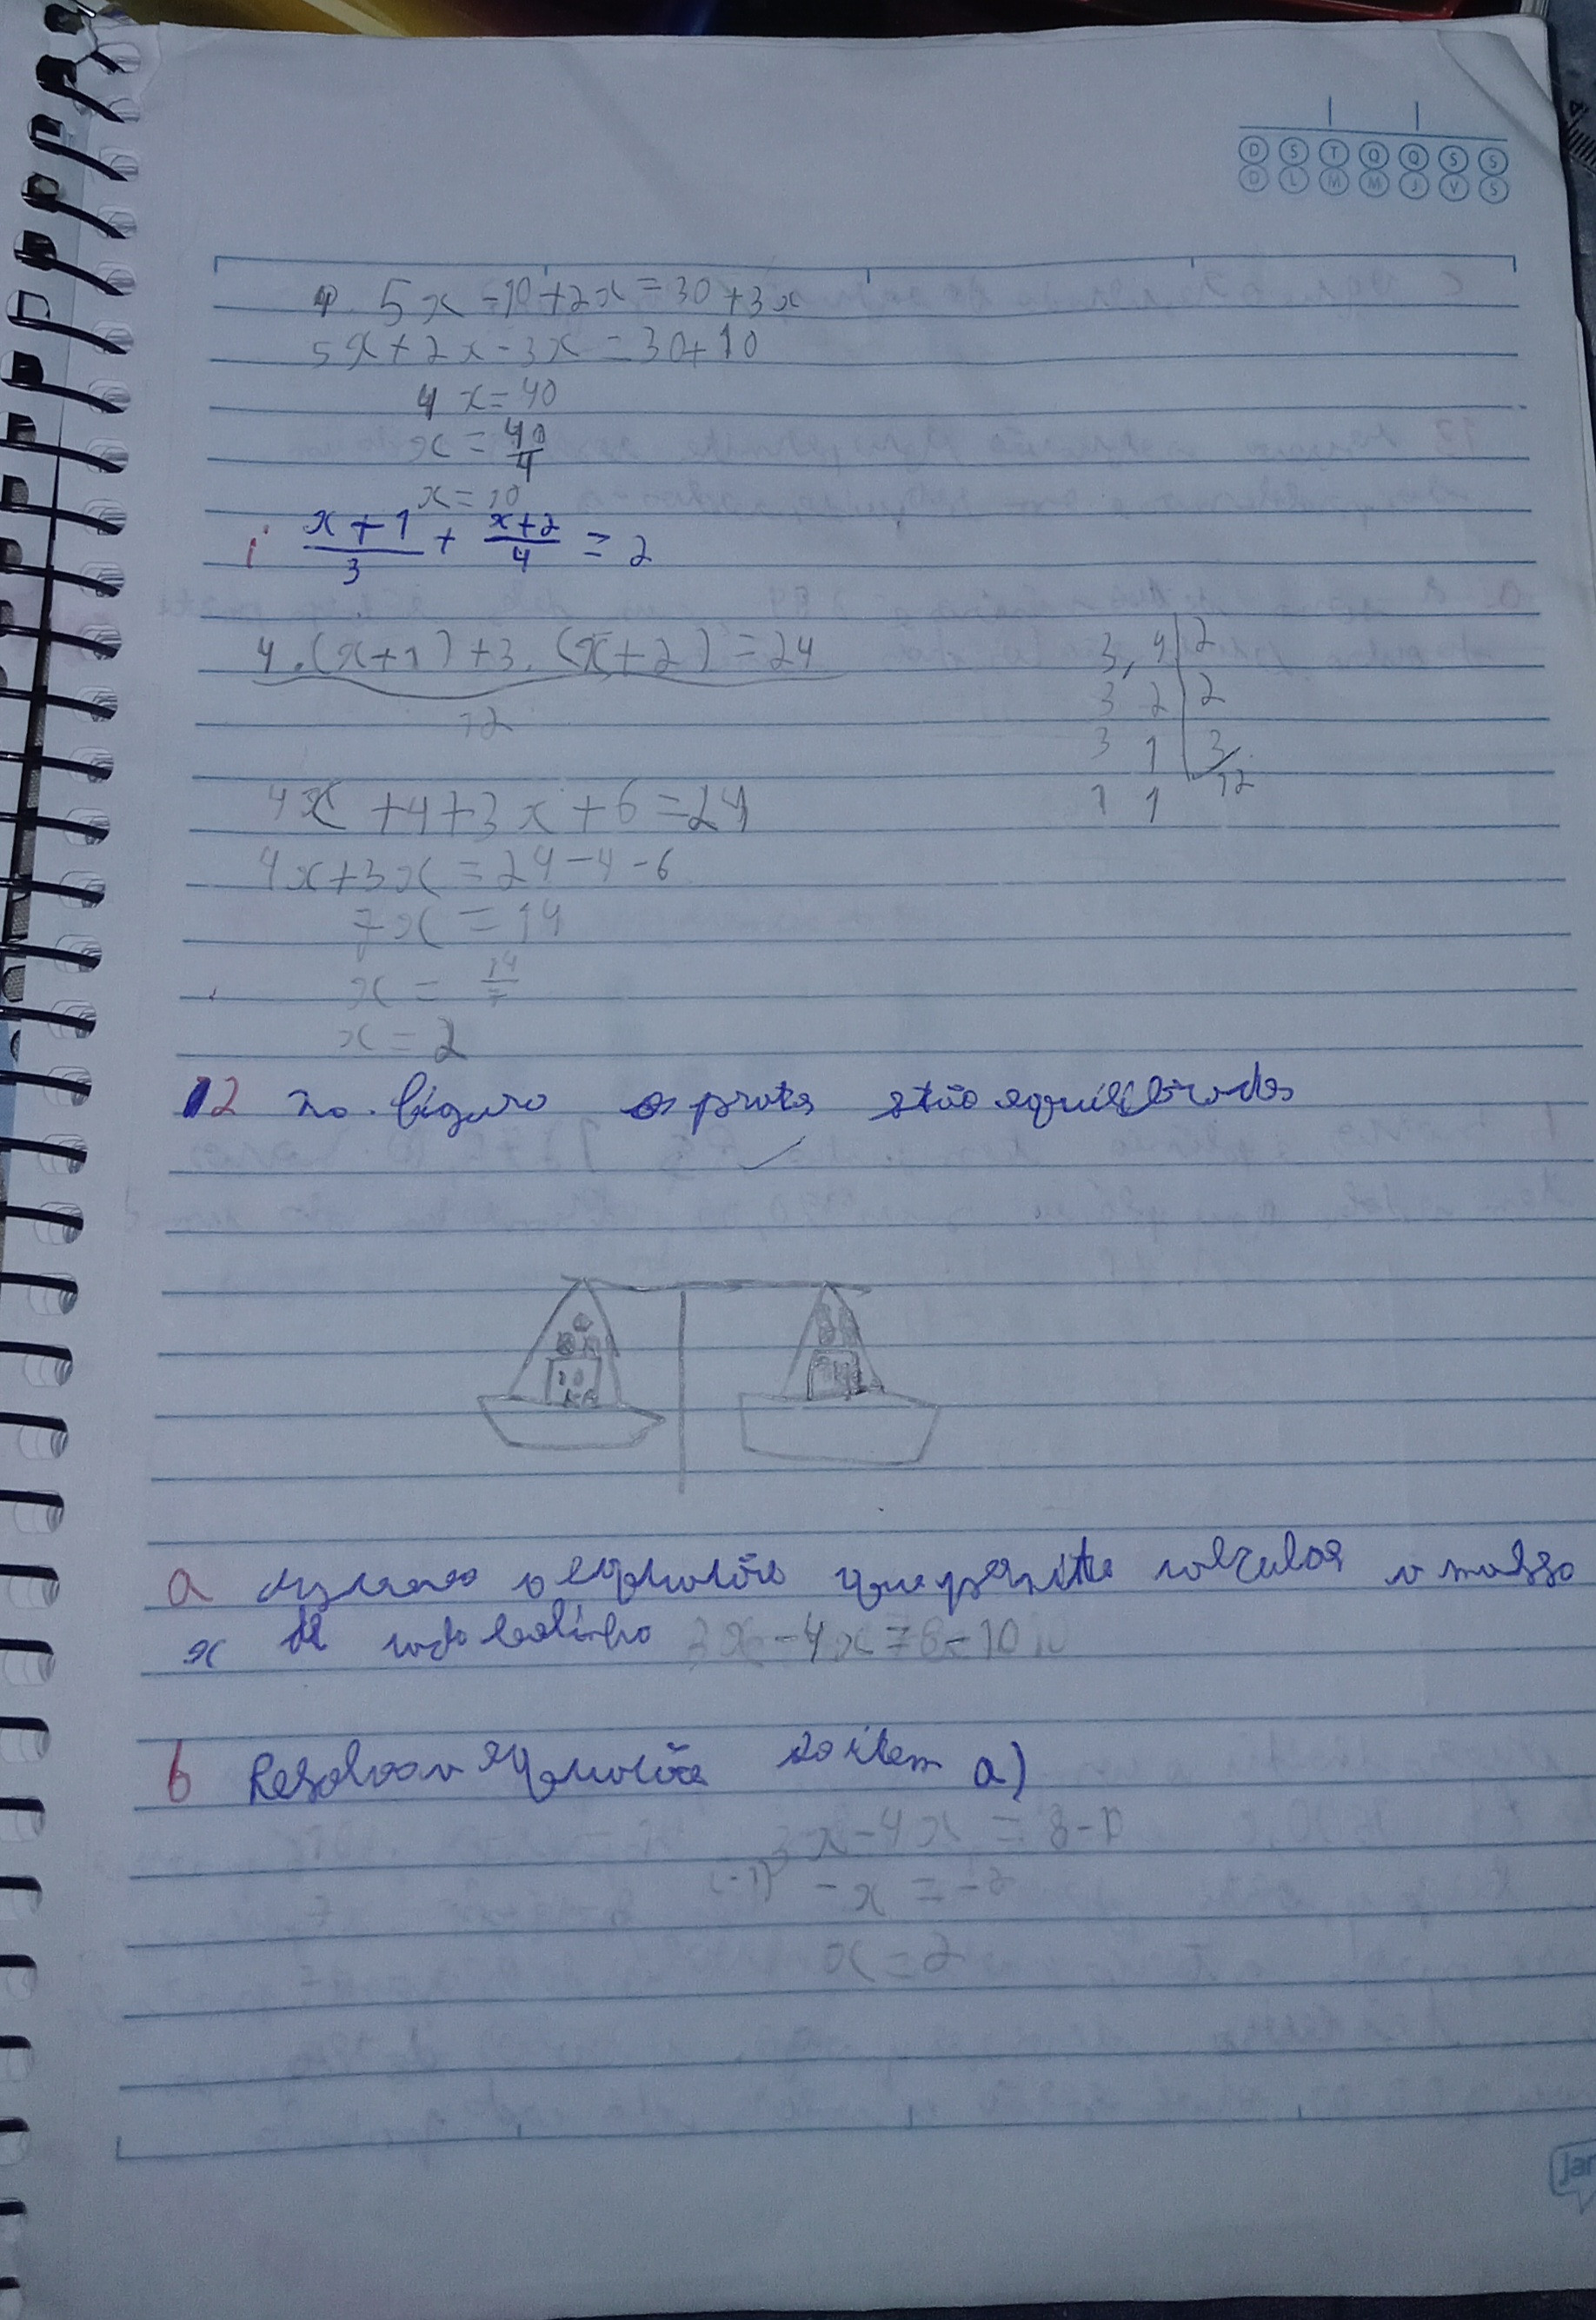 D S T Q Q S S
D L M M J V S
5x - 10 + 2x = 30 + 3x
5x + 2x - 3x = 30 + 10
4x = 40
x = 40/4
x = 10
i (x+1)/3 + (x+2)/4 = 2
4.(x+1) + 3.(x+2) = 24
12
3, 4 | 2
3 2 | 2
3 1 | 3
1 1 12
4x + 4 + 3x + 6 = 24
4x + 3x = 24 - 4 - 6
7x = 14
x = 14/7
x = 2
12 na figura os pratos estão equilibrados
10
KG
a a equação que permite calcular a massa
x de cada bolinha 3x - 4x = 8 - 10
b Resolva a equação do item a)
3x - 4x = 8 - 10
(-1) -x = -2
x = 2